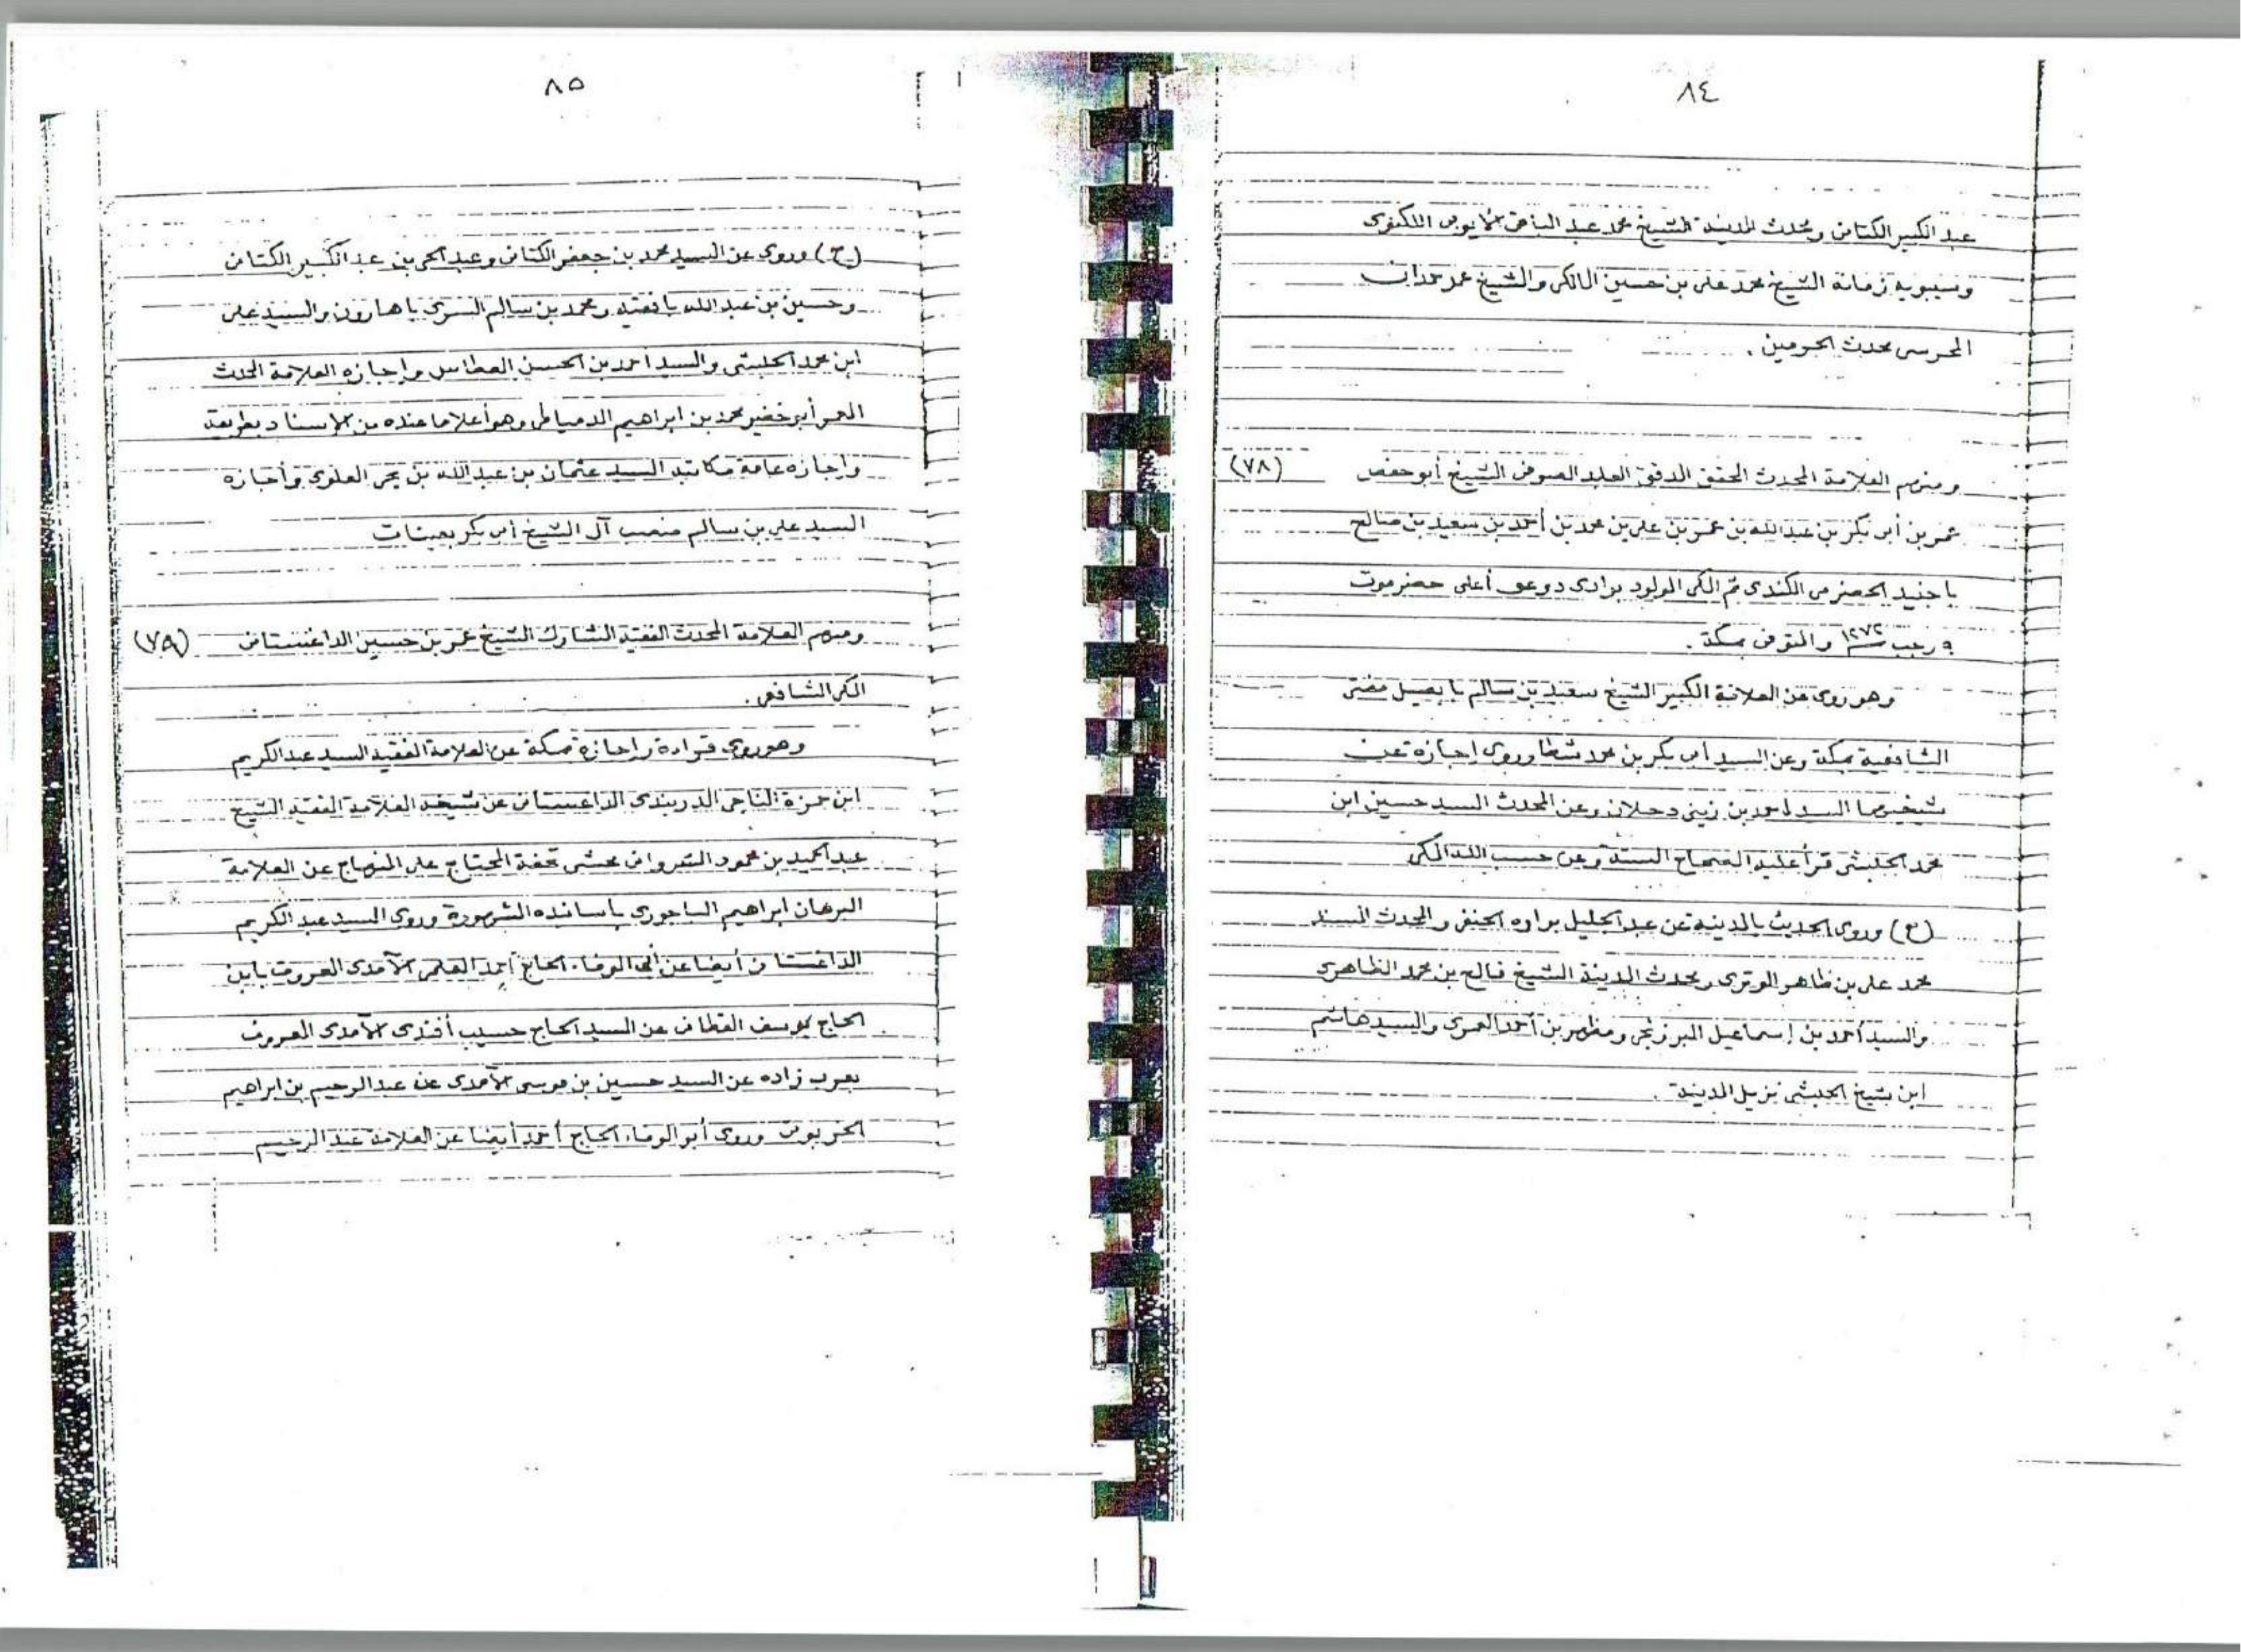 ٨٤
عبد الكبير الكتاني ومحدث المدينة الشيخ محمد عبد الباقي الأيوبي اللكنوي
وسيبويه زمانة الشيخ محمد علي بن حسين المالكي والشيخ عمر حمدان
المحرسي محدث الحرمين .
ومنهم العلامة المحدث المحقق المدقق العابد الصوفي الشيخ أبو حفص (٧٨)
عمر بن أبي بكر بن عبد الله بن عمر بن علي بن محمد بن أحمد بن سعيد بن صالح
باجنيد الحضرمي الكندي ثم المكي المولود بوادي دوعن أعلى حضرموت
رجب ١٢٧٢ والمتوفى بمكة .
وهو روى عن العلامة الكبير الشيخ سعيد بن سالم بابصيل مفتي
الشافعية بمكة وعن السيد أبي بكر بن محمد شطا وروى إجازة عن
شيخهما السيد أحمد بن زيني دحلان وعن المحدث السيد حسين ابن
محمد الحبشي قرأ عليه الصحاح الستة وعن حسب الله المكي
(ح) وروى الحديث بالمدينة عن عبد الجليل براده الحنفي والمحدث المسند
محمد علي بن ظاهر الوتري ومحدث المدينة الشيخ فالح بن محمد الظاهري
والسيد أحمد بن إسماعيل البرزنجي ومظهر بن أحمد العمري والسيد هاشم
ابن شيخ الحبشي نزيل المدينة .
٨٥
(ح) وروى عن السيد محمد بن جعفر الكتاني وعبد الحي بن عبد الكبير الكتاني
وحسين بن عبد الله بافقيه ومحمد بن سالم السري باهارون والسيد علي
ابن محمد الحبشي والسيد أحمد بن الحسن العطاس وإجازه العلامة المحدث
المعمر أبو خضير محمد بن ابراهيم الدمياطي وهو أعلا ما عنده من الإسناد بطريقة
وإجازه عامة مكاتبة السيد عثمان بن عبد الله بن يحيى العلوي وأجازه
السيد علي بن سالم منصب آل الشيخ أبي بكر بعينات
ومنهم العلامة المحدث الفقيه المشارك الشيخ عمر بن حسين الداغستاني (٧٩)
المكي الشافعي .
وهو روى قراءة وإجازة بمكة عن العلامة الفقيه السيد عبد الكريم
ابن حمزة الناجي الدربندي الداغستاني عن شيخه العلامة الفقيه الشيخ
عبد الحميد بن محمود الشرواني محشي تحفة المحتاج على المنهاج عن العلامة
البرهان ابراهيم الباجوري بأسانيده الشهورة وروى السيد عبد الكريم
الداغستاني أيضا عن أبي الوفاء الحاج أحمد العلمي الآمدي المعروف بابن
الحاج يوسف القطان عن السيد الحاج حسيب أفندي الآمدي المعروف
بعرب زاده عن السيد حسين بن موسى الآمدي عن عبد الرحيم بن ابراهيم
الخربوتي وروى أبو الوفاء الحاج أحمد أيضا عن العلامة عبد الرحيم